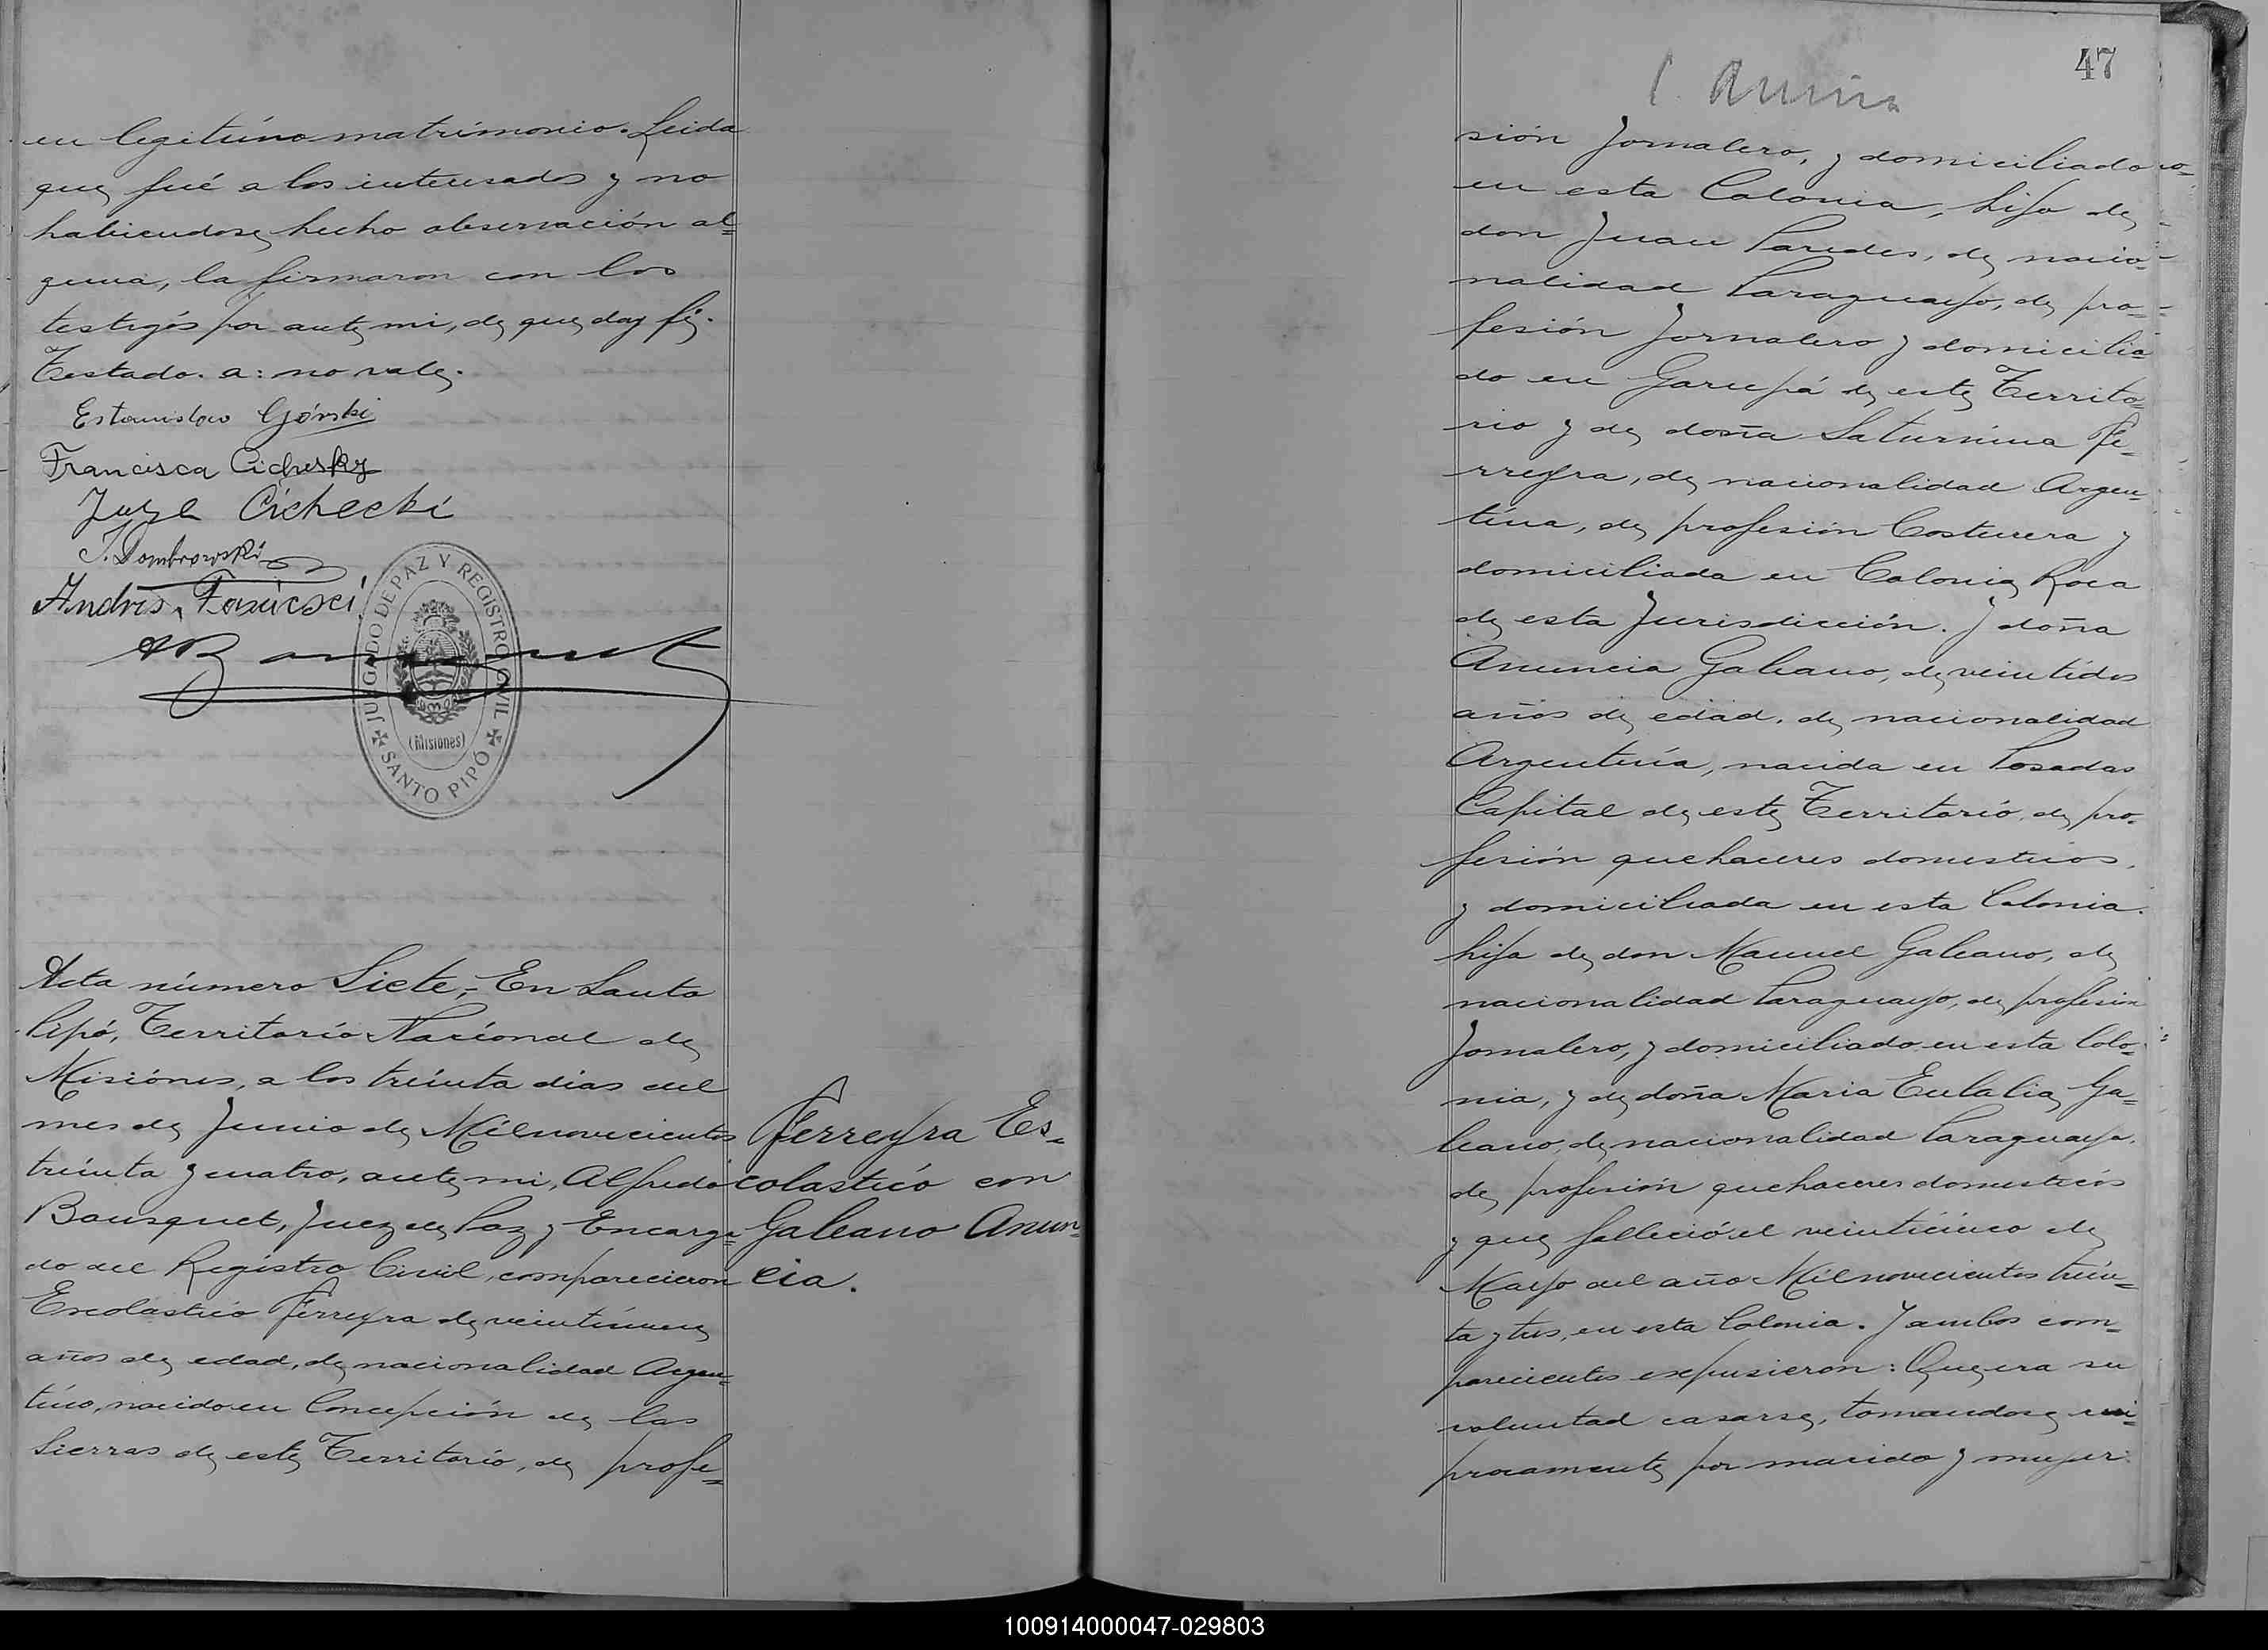 en legitimo matrimonio. Leida
que fué a los interesados y no
habiendose hecho observación al=
guna, la firmaron con los
testigos por ante mi, de que doy fé.
Testado. a: no vale.
Estanislao Górski
Francisca Cichesky
Cichecki
J. Dombrowski
Andrés
JUZGADO DE PAZ Y REGISTRO CIVIL
(Misiones)
SANTO PIPÓ
Acta número Siete,- En Santo
Pipó, Territorio Nacional de
Misiónes, a los treinta dias del
mes de Junio de Milnovecientos
treinta y cuatro, ante mi, Alfredo
Bousquet, Juez de Paz y Encarga=
do del Registro Civil, comparecieron
Escolástico Ferreyra de veintinueve
años de edad, de nacionalidad Argen=
tino, nacido en Concepción de las
Sierras de este Territorio, de profe=
Ferreyra Es=
colastico con
Galeano Anun=
cia.
47
sión Jornalero, y domiciliado
en esta Colonia, hijo de
don Juan Paredes, de nacio=
nalidad Paraguayo, de pro=
fesión Jornalero y domicilia=
do en Garupá de este Territo=
rio y de doña Saturnina Fe=
rreyra, de nacionalidad Argen=
tina, de profesión Costurera y
domiciliada en Colonia Roca
de esta Jurisdicción. Y doña
Anuncia Galeano, de veintidos
años de edad, de nacionalidad
Argentina, nacida en Posadas
Capital de este Territorio, de pro=
fesión quehaceres domesticos,
y domiciliada en esta Colonia.
hija de don Manuel Galeano, de
nacionalidad Paraguayo, de profesión
Jornalero, y domiciliado en esta Colo=
nia, y de doña Maria Eulalia Ga=
leano, de nacionalidad Paraguaya.
de profesión quehaceres domesticos
y que falleció el veinticinco de
Mayo del año Milnovecientos trein=
ta y tres, en esta Colonia. Y ambos com=
parecientes expusieron: Que era su
voluntad casarse, tomandose reci=
procamente por marido y mujer.
100914000047-029803